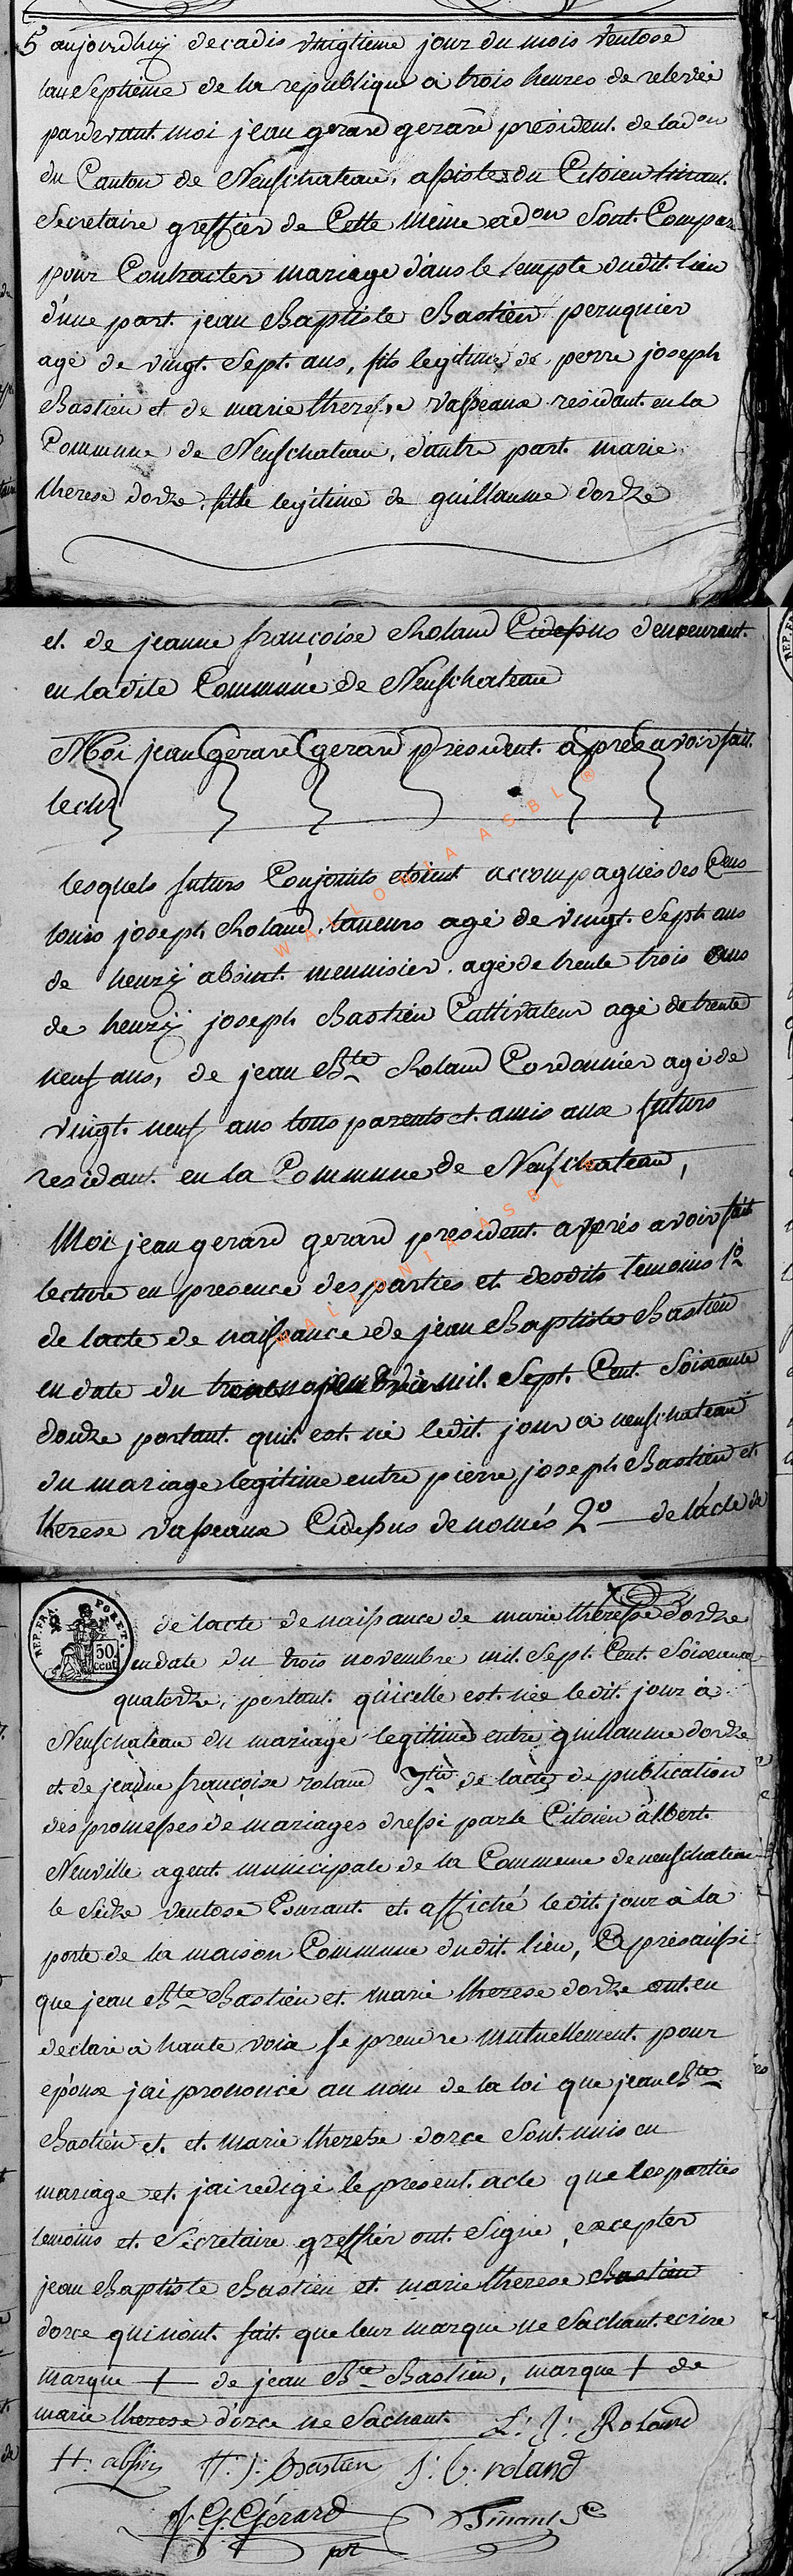 5 aujourdhuy decadis vingtieme jour du mois ventose
lan Septieme de la republique a trois heures de relevée
pardevant moi jean gerard gerard président de ladon
du Canton de Neufchateau, assistes du Citoien tinant
Secretaire greffier de Cette même adon Sont Compar
pour Contracter mariage dans le temple dudit lieu
d'une part jean Baptiste Bastien peruquier
agé de vingt Sept ans, fils legitime de perre joseph
Bastien et de marie therese vasseaux residant en la
Commune de Neufchateau, dautre part marie
therese dordze fille legitime de guillaume dordze
et de jeanne françoise Roland Cidessus demeurant
en ladite Commune de Neufchateau
Moi jean Gerard gerard président après avoir fait
lectur
lesquels futurs Conjoints etoient accompagnés des Cens
louis joseph Roland, taneurs agé de vingt Sept ans
de henry absint menuisier agé de trente trois ans
de henry joseph Bastien Cultivateur agé de trente
neuf ans, de jean Bte Roland Cordonnier agé de
vingt neuf ans tous parents et amis aux futurs
residant en la Commune de Neufchateau,
Moi jean gerard gerard président après avoir fait
lecture en présence des parties et desdits temoins 1o
de lacte de naissance de jean Baptiste Bastien
en date du mil Sept Cent Soixante
douze portant quil est né ledit jour a neufchateau
du mariage legitime entre pierre joseph Bastien et
therese vasseaux Cidessus denomés 2o de lacte de
de lacte de naissance de marie therese dordze
REP. FRA. POREL. 50 cent
en date du trois novembre mil Sept Cent Soixante
quatorze, portant quicelle est née ledit jour à
Neufchateau du mariage legitime entre guillaume dordze
et de jeanne françoise roland de lacte de publication
des promesses de mariages dressé par le Citoien albert
Neuville agent municipale de la Commune de neufchateau
le Seize ventose Courant et affiché ledit jour à la
porte de la maison Commune dudit lieu, Après aussi
que jean Bte Bastien et marie therese dordze ont eu
declaré à haute voix se prendre mutuellement pour
epoux jai prononcé au nom de la loi que jean Bte
Bastien et et marie therese dorze Sont unis en
mariage et jai redigé le present acte que les parties
temoins et Secretaire greffier ont Signé, excepter
jean Baptiste Bastien et marie therese Bastien
dorze qui nont fait que leur marque ne Sachant ecrire
marque + de jean Bte Bastien, marque + de
marie therese d'orze ne Sachant L: J: Roland
H: absin H: J: Bastien J: B: roland
J. G. Gérard Tinant Sre
pr
WALLONIA ASBL ®
WALLONIA ASBL